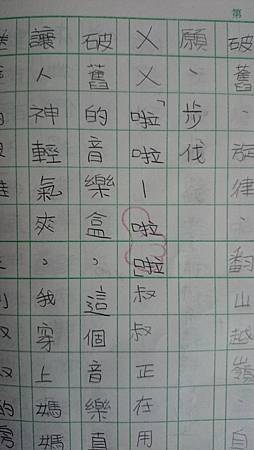 第
破舊、旋律、翻山越嶺、自
願、步伐
ㄨㄨ啦啦ㄧ啦啦叔叔正在用
破舊的音樂盒，這個音樂真
讓人神輕氣夾，我穿上媽媽